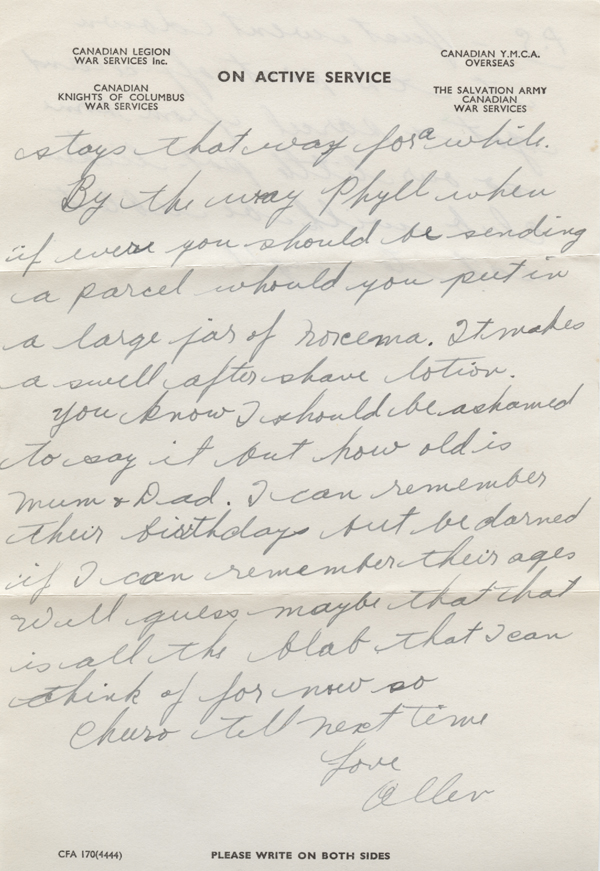 CANADIAN LEGION
WAR SERVICES Inc.
CANADIAN
KNIGHTS OF COLUMBUS
WAR SERVICES
ON ACTIVE SERVICE
CANADIAN Y.M.C.A.
OVERSEAS
THE SALVATION ARMY
CANADIAN
WAR SERVICES
stays that way for a while.
By the way Phyll when
if ever you should be sending
a parcel whould you put in
a large jar of noxema. It makes
a swell after shave lotion.
You know I should be ashamed
to say it but how old is
Mum & Dad. I can remember
their birthdays but be darned
if I can remember their ages
Well guess maybe that that
is all the blab that I can
think of for now so
Cheero till next time
Love
Allen
CFA 170(4444)
PLEASE WRITE ON BOTH SIDES